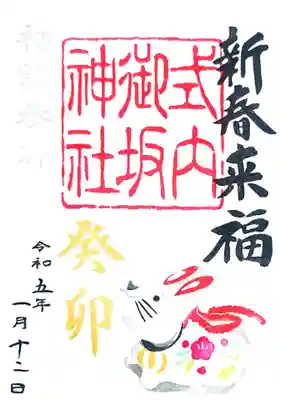 新春来福
式内
御坂
神社
癸卯
令和五年
一月十二日